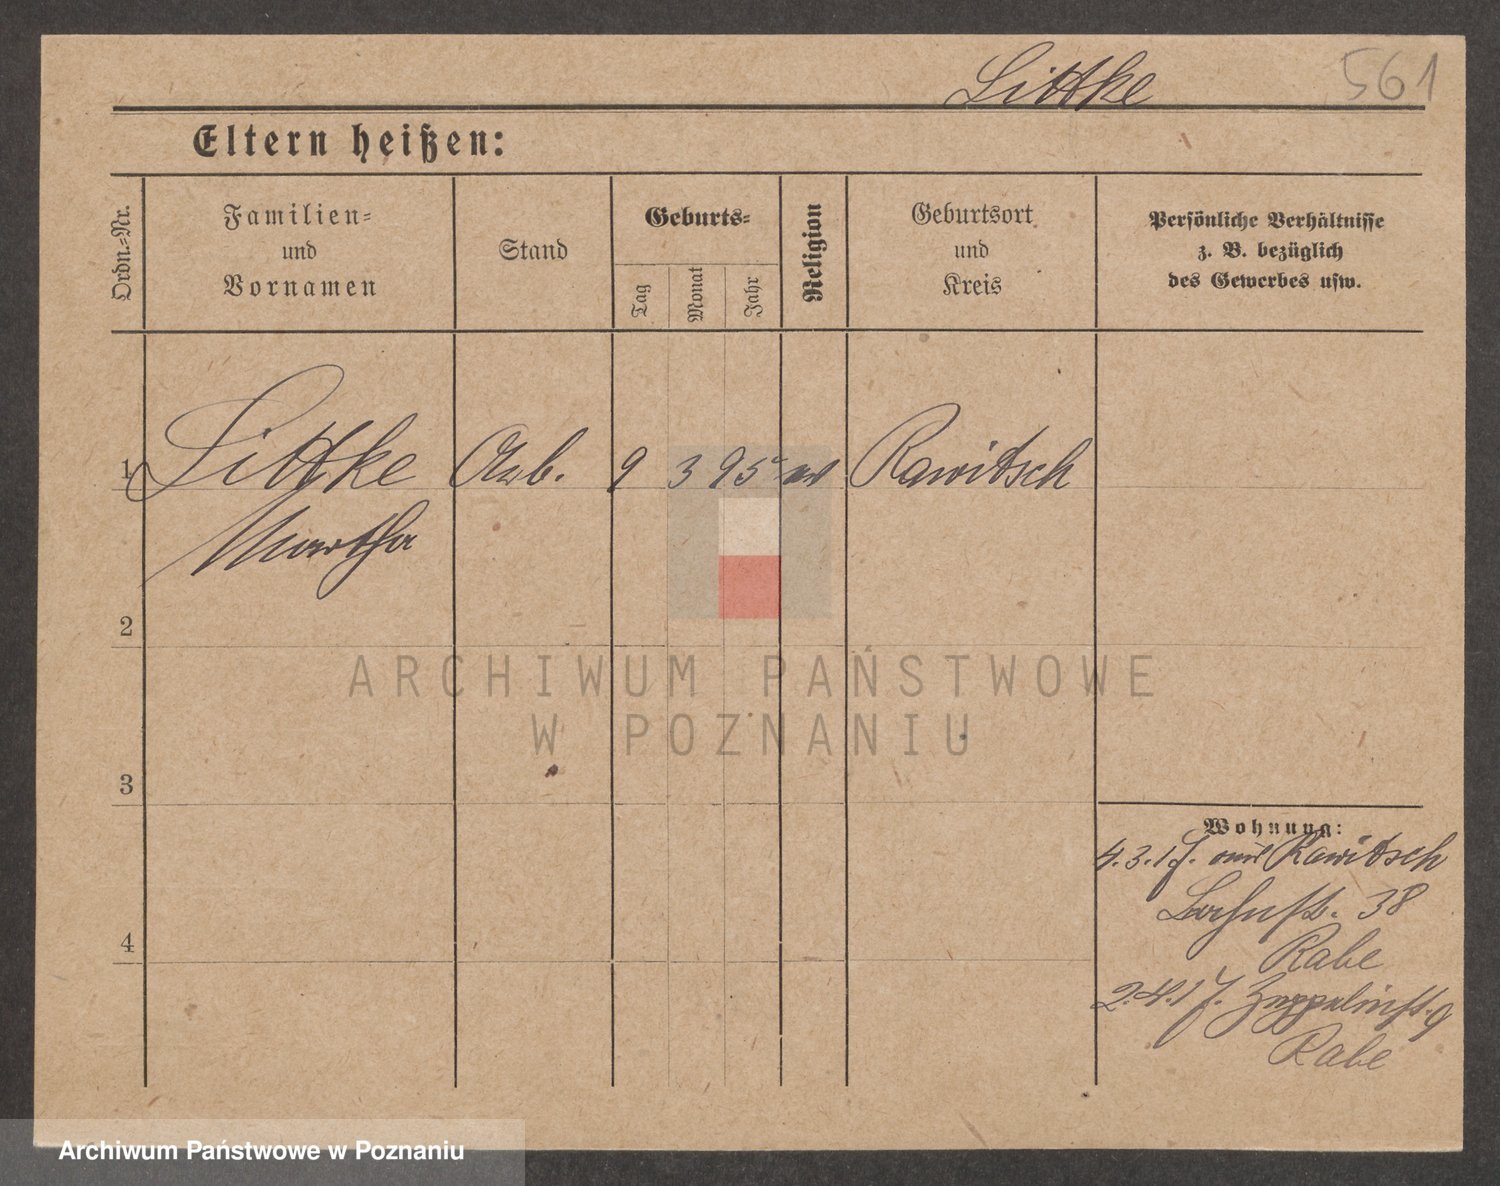 Littke 561
Eltern heißen:
Ordn.-Nr.
Familien-
und
Vornamen
Stand
Geburts-
Tag
Monat
Jahr
Religion
Geburtsort
und
Kreis
Persönliche Verhältnisse
z. B. bezüglich
des Gewerbes usw.
1 Littke Arb. 9 3 95 ev Rawitsch
Martha
2
3
4
Wohnung:
4.3.17. aus Rawitsch
38
Rabe
2.4.17. Zeppelinst. 9
Rabe
ARCHIWUM PAŃSTWOWE
W POZNANIU
Archiwum Państwowe w Poznaniu